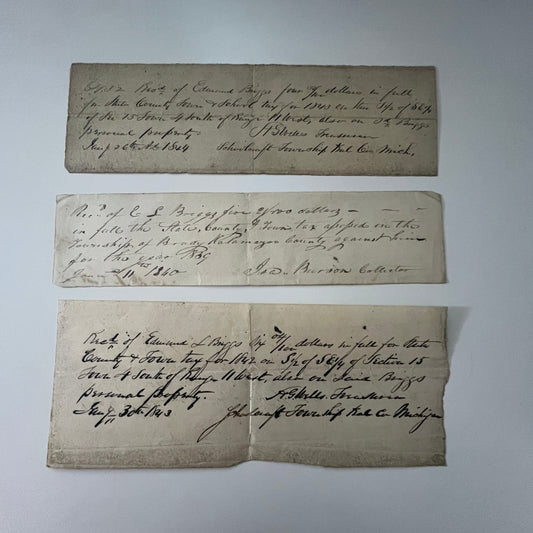 Recd of Edmund Briggs four dollars in full
for State County Town & School tax for 1843 on the S½ of SE¼
of Sec 15 Town 4 South of Range 11 West, also on Sd Briggs
personal property. Treasurer
Jany 26th AD 1844 Schoolcraft Township Kal Co. Mich.
Rec.d of E L Briggs five /100 dollars
in full the State, County, & Town tax assessed in the
Township of Brady Kalamazoo County against him
for the year 1839
Jan 11th 1840 Burson Collector
Recd of Edmund L Briggs /100 dollars in full for State
County & Town tax for 1842 on S½ of SE¼ of Section 15
Town 4 South of Range 11 West, also on Said Briggs
personal property. Treasurer
Jany 30th 1843 Schoolcraft Township Kal Co Michigan